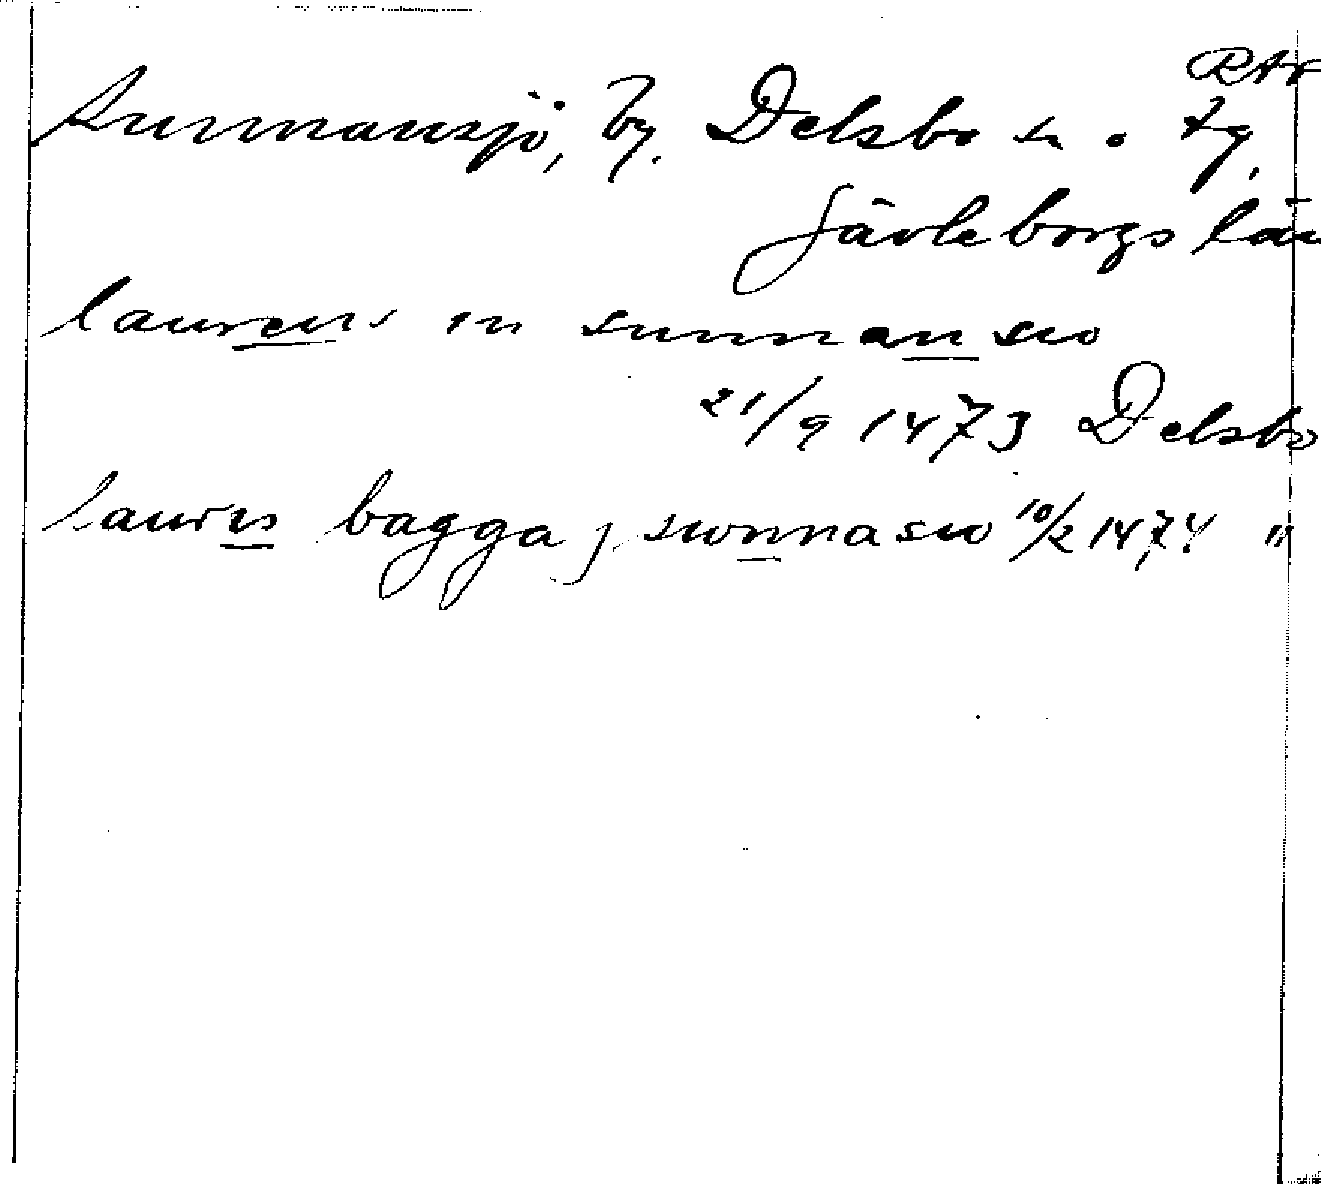 RAP
Sunnansjö, by. Delsbo sn. o. tg.
Gävleborgs län
laurens in sunnansio
21/9 1473 Delsbo
lauris bagga j sunnasio 10/2 1474 "